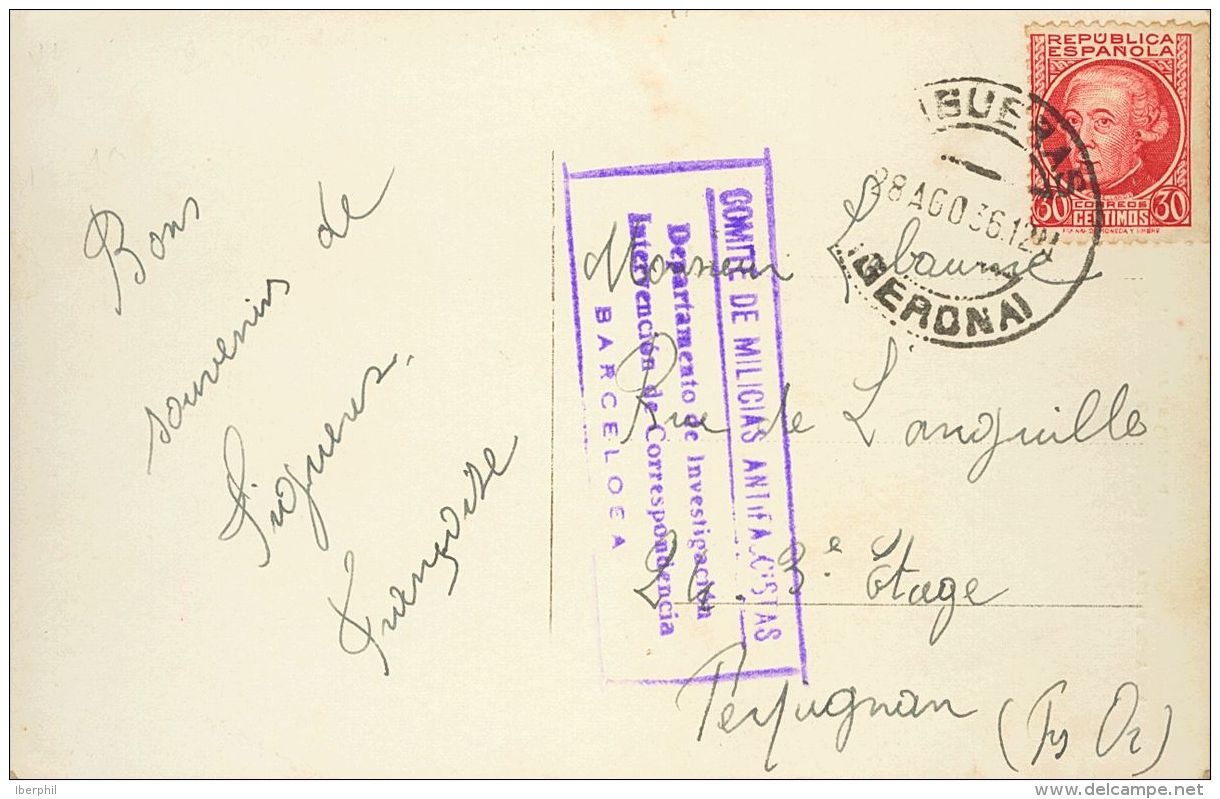 Bons
souvenirs de
Figueres.
Françoise
COMITE DE MILICIAS ANTIFASCISTAS
Departamento de Investigación
Intervención de Correspondencia
BARCELOEA
REPÚBLICA
ESPAÑOLA
CORREOS
30 CENTIMOS 30
IGUERAS
28 AGO 36.12
(GERONA)
Monsieur
Rue de L'anguille
3e Etage
Perpignan (Py Or)
Iberphil
www.delcampe.net